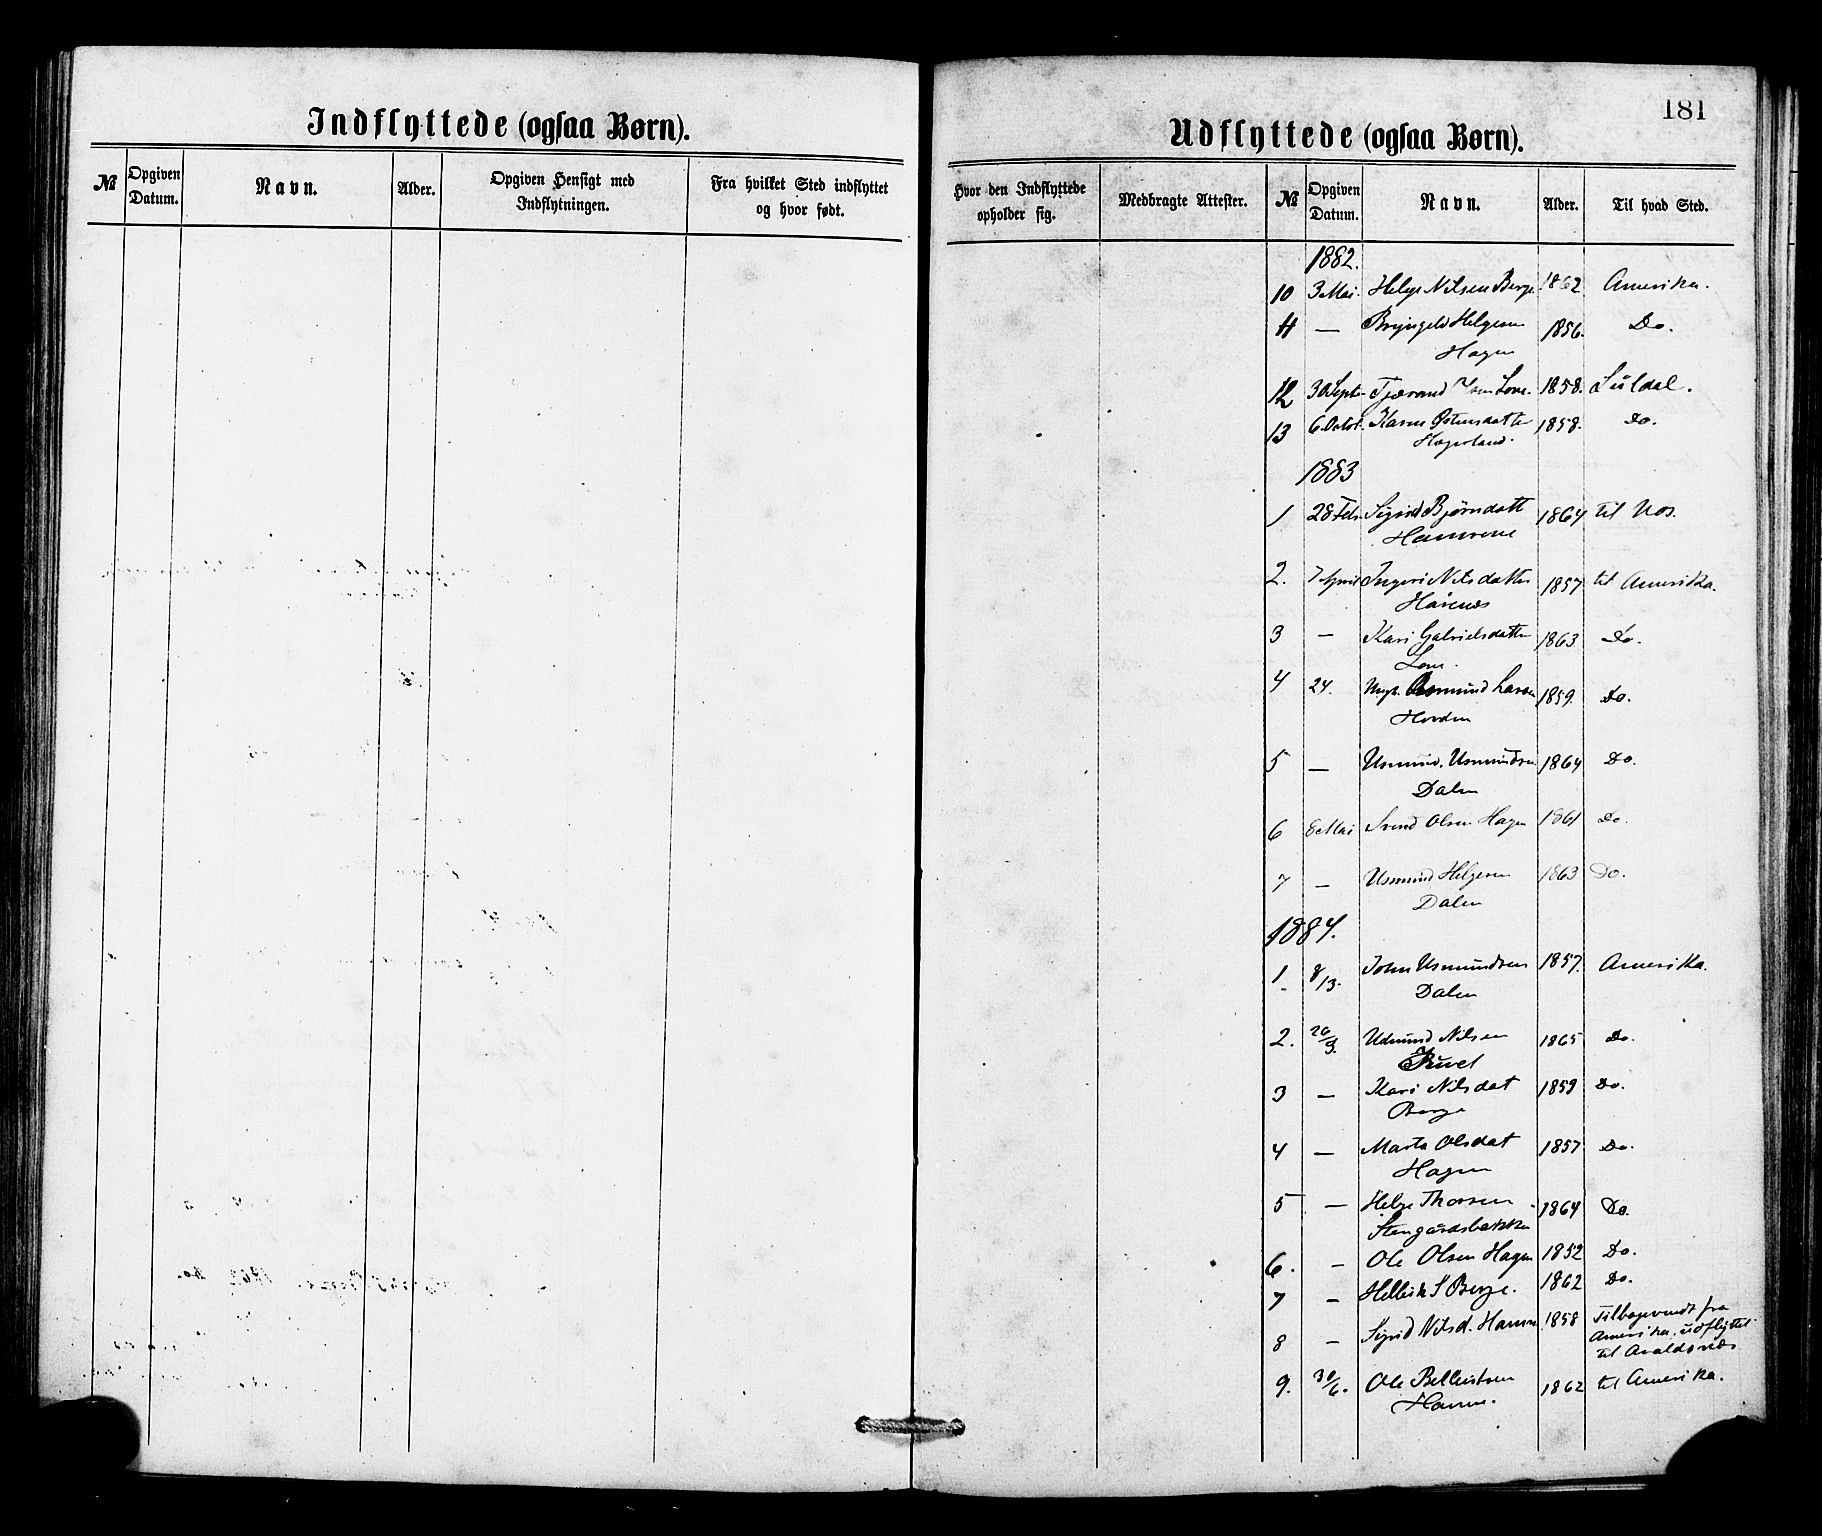 181
Indflyttede (ogsaa Børn).
№ Opgiven Datum. Navn. Alder. Opgiven Hensigt med Indflytningen. Fra hvilket Sted indflyttet og hvor født.
Udflyttede (ogsaa Børn).
Hvor den Indflyttede opholder sig. Medbragte Attester. № Opgiven Datum. Navn. Alder. Til hvad Sted.
1882.
10 3 Mai. Helge Nilsen Berge 1862 Amerika.
11 — Bryngeld Helgesen 1856. Do.
Hagen
12 30 Sept. Tjærand Love. 1858. Suldal.
13 6. Octob. Karen Østensdatter 1858. Do.
1883
1 28 Feb. Sigrid Bjørnsdatt 1864 til Nos.
Hamrene
2. 7 April Ingeri Nilsdatter 1857 til Amerika.
3 — Kari Gabrielsdatter 1863 Do.
Love.
4 24. Ungk. Asmund Larsen 1859. Do.
Hovden
5 — Usmund. Usmundsen 1864 Do.
Dalen
6 8 Mai Svend Olsen Hagen 1861 Do.
7 — Usmund Helgesen 1863 Do.
Dalen
1884.
1 8/13. John Usmundsen 1857. Amerika.
Dalen
2. 26/3. Udmund Nilsen 1865 Do.
3 — Kari Nilsdat 1859 Do.
Berge
4 — Marta Olsdat 1857 Do.
Hagen
5 — Helge Thorsen 1864 Do.
Stengardsbakka
6. — Ole Olsen Hagen 1852 Do.
7 — Helleik S Berge. 1862 Do.
8 — Sigrid Nilsd. Hamre 1858 Tilbagevendt fra
Amerika, udflyttet
til Avaldsnæs
9. 30/6. Ole Belleistsen 1862 til Amerika.
Hamre.